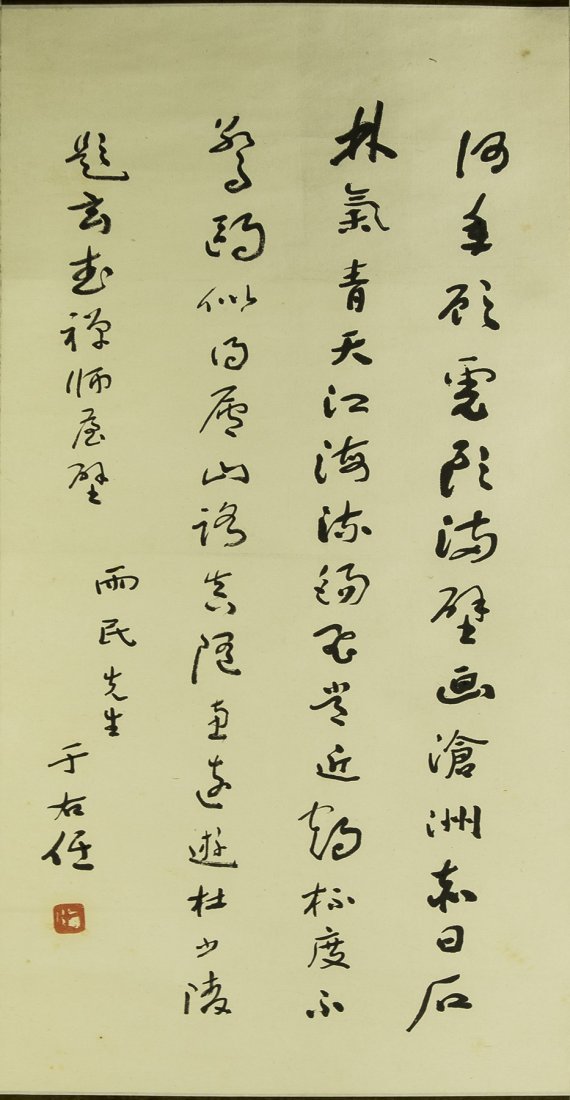 何年顧虎頭滿壁画滄洲赤日石
林氣青天江海流錫飛常近鶴杯度不
驚鷗似得廬山路真隨惠遠遊杜少陵
題玄武禪師屋壁
雨民先生
于右任